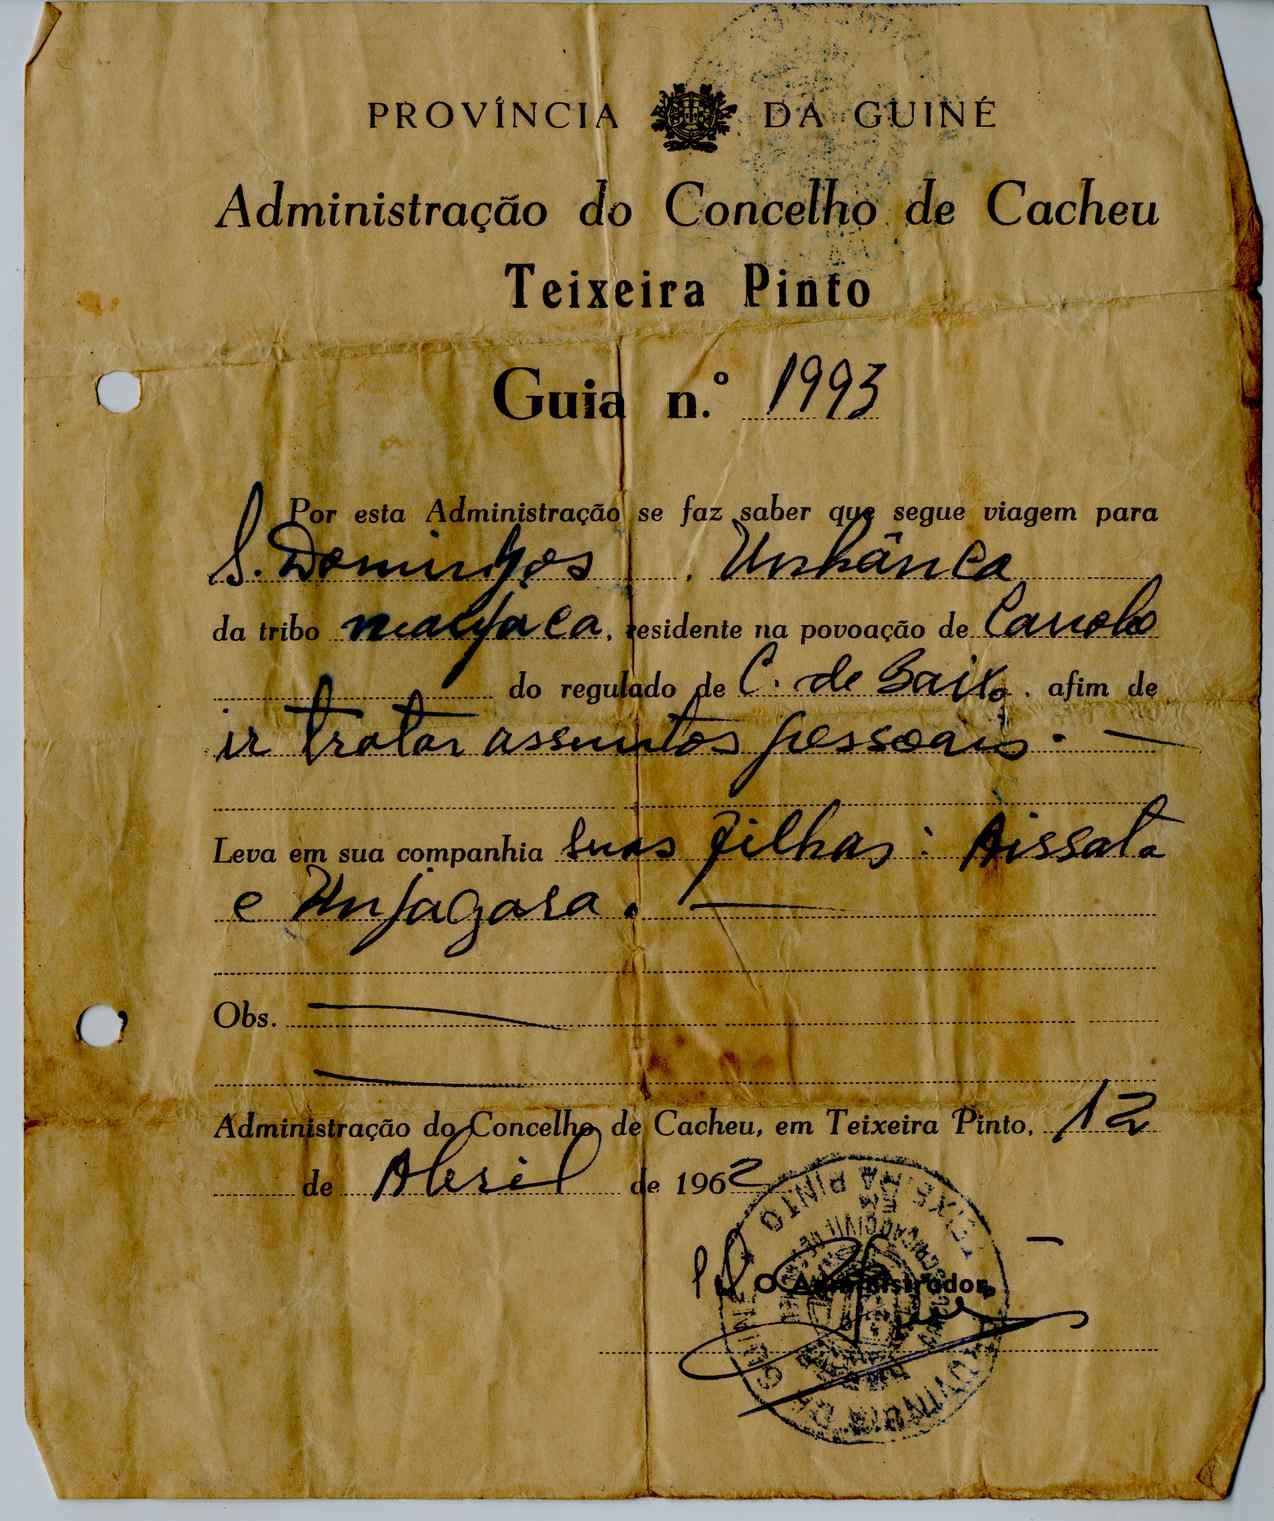 PROVÍNCIA DA GUINÉ
Administração do Concelho de Cacheu
Teixeira Pinto
Guia n.º 1993
Por esta Administração se faz saber que segue viagem para
S. Domingos, Unhânca
da tribo manjaca, residente na povoação de
do regulado de C. de Baixo, afim de
ir tratar assuntos pessoais. —
Leva em sua companhia suas filhas: Aissata
e Unjagara. —
Obs. —
—
Administração do Concelho de Cacheu, em Teixeira Pinto, 12
de Abril de 1962
O Administrador,
TEIXEIRA PINTO
PROVINCIA DE GUINÉ